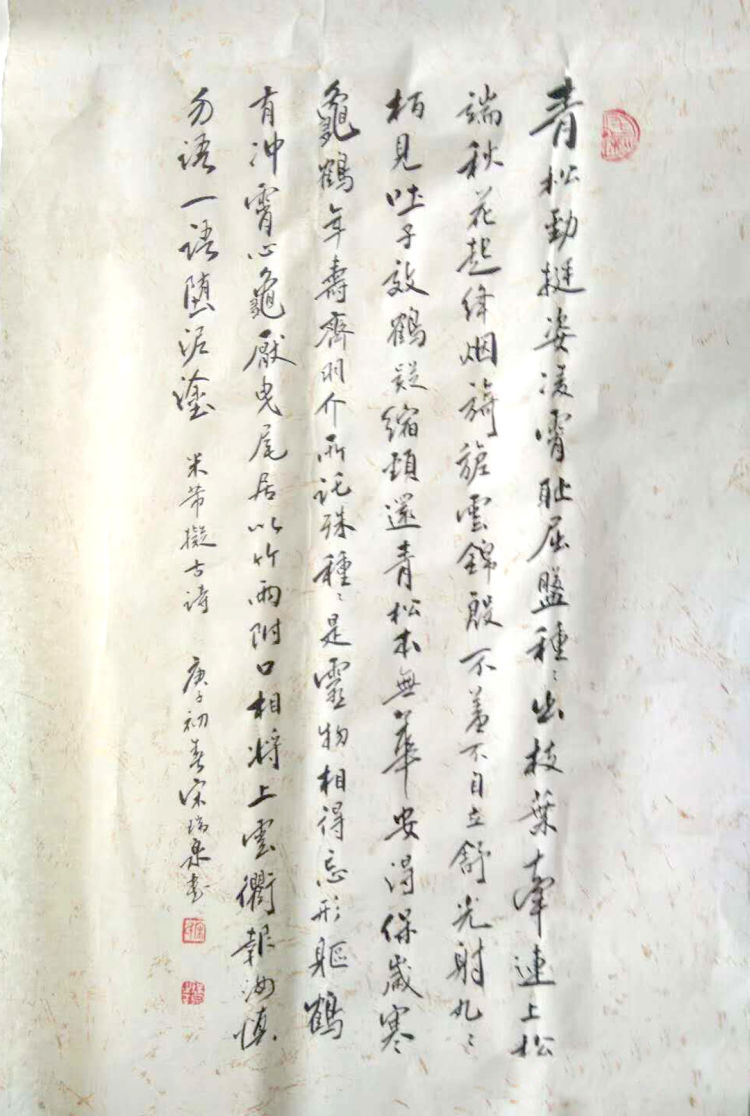 青松勁挺姿凌霄恥屈盤種〻出枝葉牽連上松
端秋花起絳烟旖旎雲錦殷不羞不自立舒光射丸〻
栢見吐子效鶴疑縮頸還青松本無華安得保歲寒
龜鶴年壽齊羽介所託殊種〻是靈物相得忘形軀鶴
有沖霄心龜厭曳尾居以竹兩附口相將上雲衢報汝慎
勿語一語墮泥塗
米芾擬古詩
庚子初春宋瑞泉書